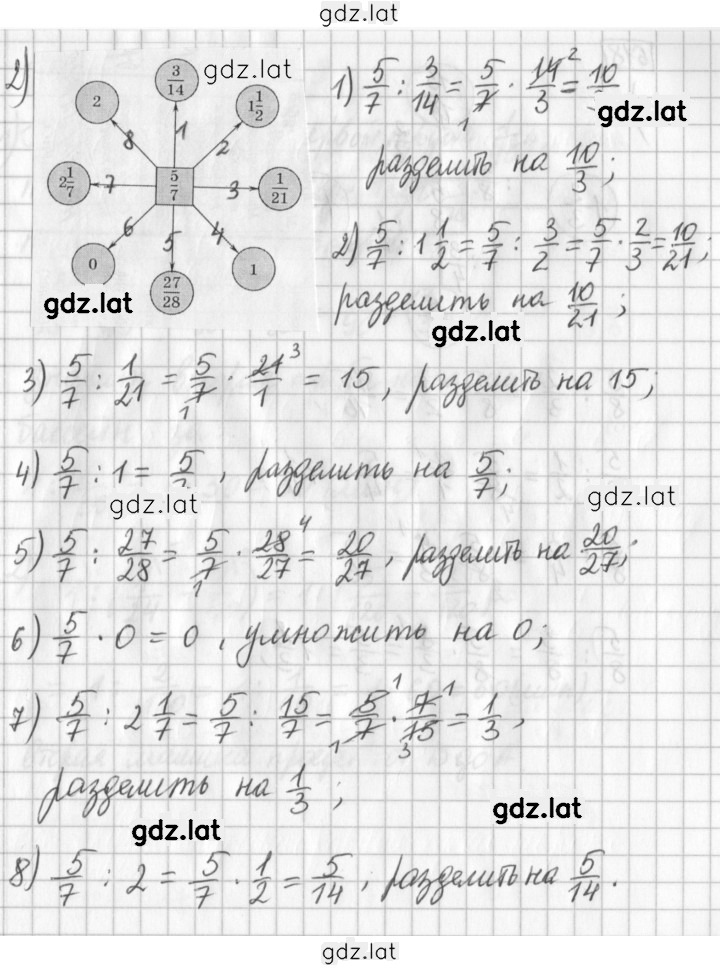 gdz.lat
2)
3/14
gdz.lat
2
1 1/2
1
8
2
2 1/7
7
5/7
3
1/21
6
5
4
0
27/28
1
gdz.lat
1) 5/7 : 3/14 = 5/7 · 14/3 = 10
1
2
gdz.lat
разделить на 10/3;
2) 5/7 : 1 1/2 = 5/7 : 3/2 = 5/7 · 2/3 = 10/21;
разделить на 10/21;
gdz.lat
3) 5/7 : 1/21 = 5/7 · 21/1 = 15, разделить на 15;
1
3
4) 5/7 : 1 = 5/7, разделить на 5/7;
gdz.lat
gdz.lat
5) 5/7 : 27/28 = 5/7 · 28/27 = 20/27, разделить на 20/27;
1
4
6) 5/7 · 0 = 0, умножить на 0;
7) 5/7 : 2 1/7 = 5/7 : 15/7 = 5/7 · 7/15 = 1/3,
1
1
1
3
разделить на 1/3;
gdz.lat
gdz.lat
8) 5/7 : 2 = 5/7 · 1/2 = 5/14, разделить на 5/14.
gdz.lat